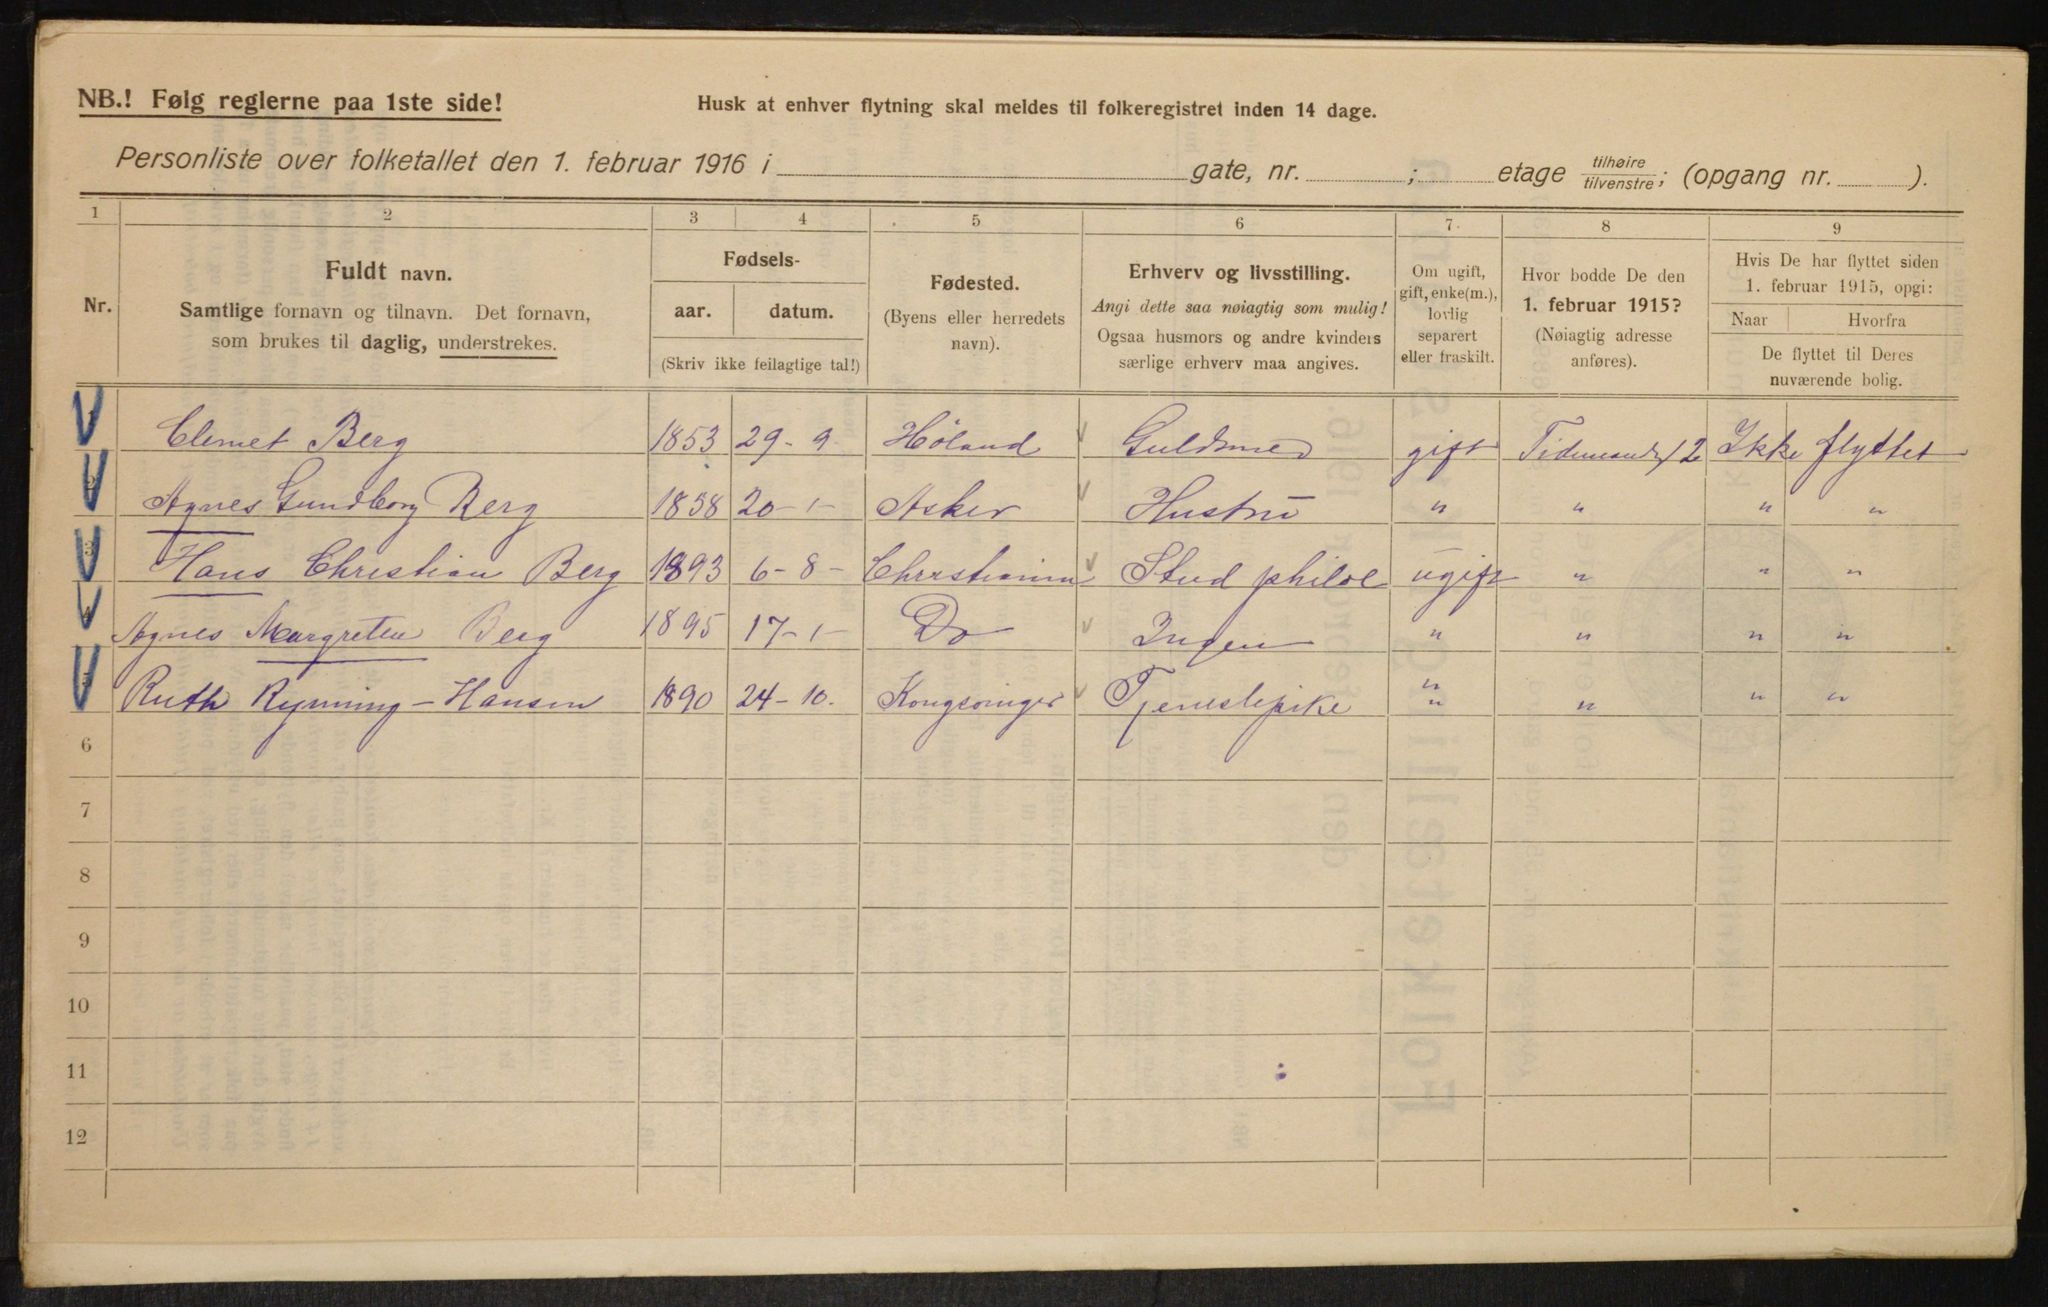 NB.! Følg reglerne paa 1ste side!
Husk at enhver flytning skal meldes til folkeregistret inden 14 dage.
Personliste over folketallet den 1. februar 1916 i gate, nr. ; etage tilhøire/tilvenstre; (opgang nr. ).
1 2 3 4 5 6 7. 8 9
Nr.
Fuldt navn.
Samtlige fornavn og tilnavn. Det fornavn,
som brukes til daglig, understrekes.
Fødsels-
aar. datum.
(Skriv ikke feilagtige tal!)
Fødested.
(Byens eller herredets
navn).
Erhverv og livsstilling.
Angi dette saa nøiagtig som mulig!
Ogsaa husmors og andre kvinders
særlige erhverv maa angives.
Om ugift,
gift, enke(m.),
lovlig
separert
eller fraskilt.
Hvor bodde De den
1. februar 1915?
(Nøiagtig adresse
anføres).
Hvis De har flyttet siden
1. februar 1915, opgi:
Naar Hvorfra
De flyttet til Deres
nuværende bolig.
1 Clemet Berg 1853 29-9. Høland Guldsmed gift 12 Ikke flyttet
2 Agnes Gundborg Berg 20-1- Asker Hustru " " " "
3 Hans Christian Berg 1893 6-8- Christiania Stud philol ugift " " "
4 Agnes Margrethe Berg 1895 17-1- Do Ingen " " " "
5 Ruth Rynning-Hansen 1890 24-10. Kongsvinger Tjenestepike " " " " "
6
7
8
9
10
11
12